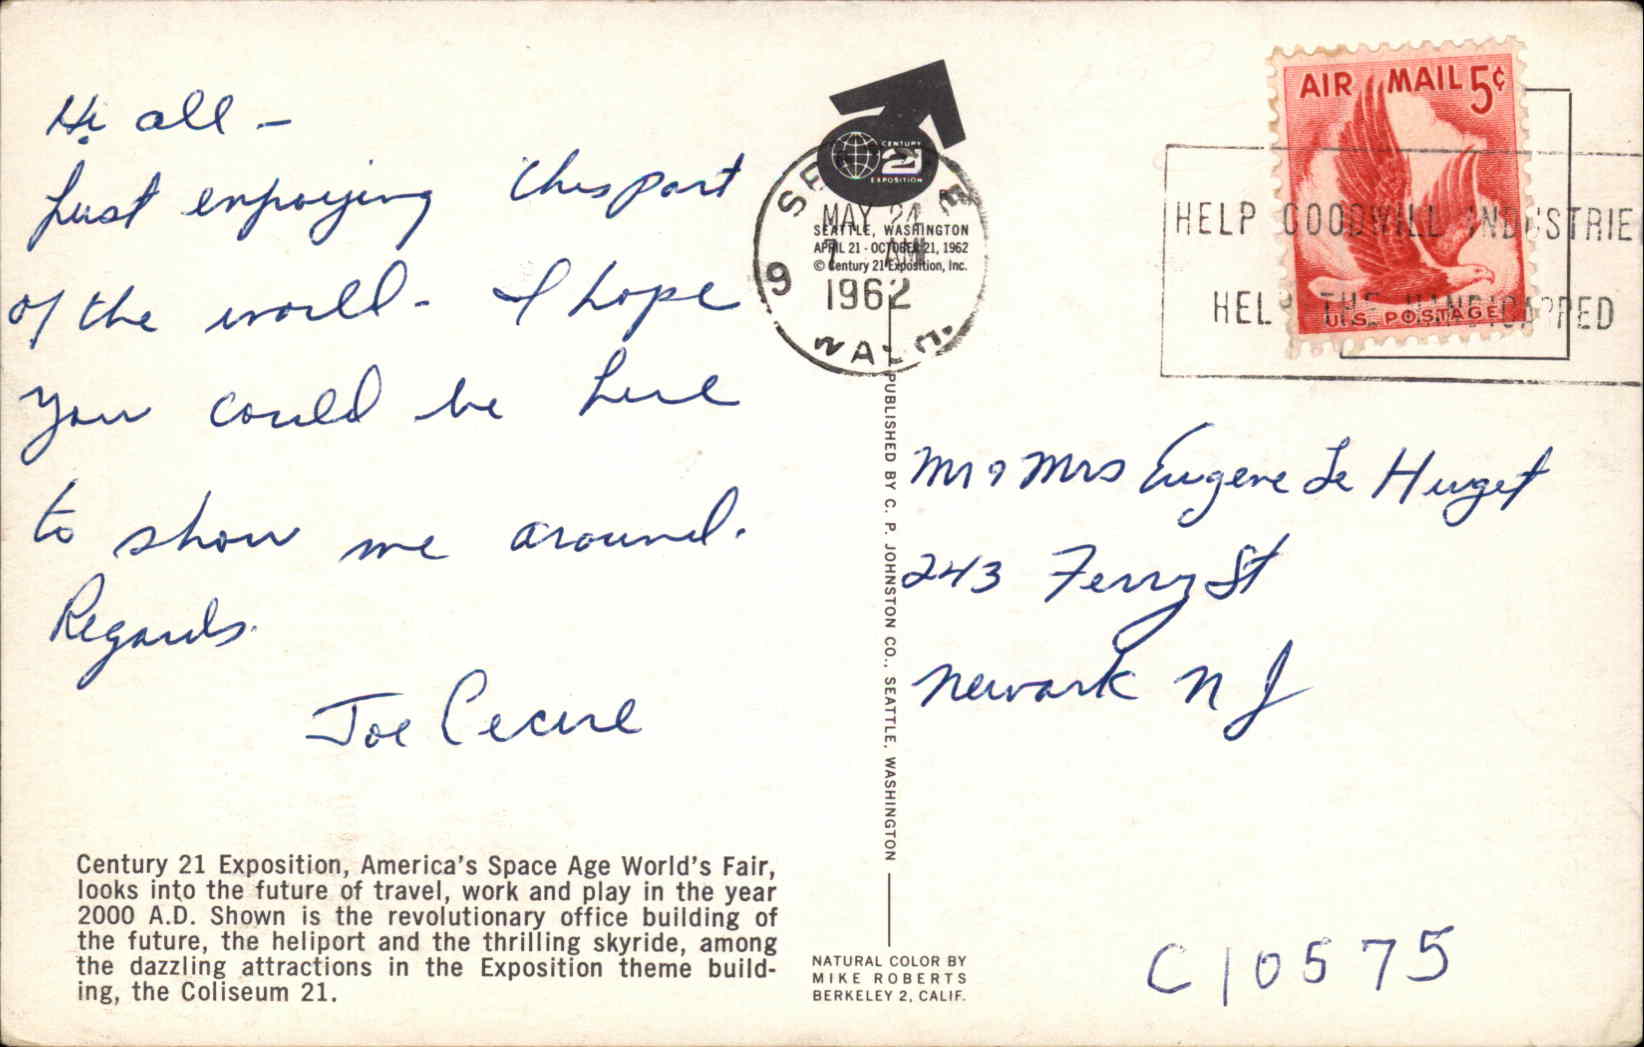 Hi all -
Just enjoying this part
of the world - I hope
you could be here
to show me around.
Regards.
Joe
Century 21 Exposition, America's Space Age World's Fair,
looks into the future of travel, work and play in the year
2000 A.D. Shown is the revolutionary office building of
the future, the heliport and the thrilling skyride, among
the dazzling attractions in the Exposition theme build-
ing, the Coliseum 21.
CENTURY
21
EXPOSITION
SEATTLE, WASHINGTON
APRIL 21 - OCTOBER 21, 1962
© Century 21 Exposition, Inc.
SEATTLE
MAY 24
AM
1962
WASH.
PUBLISHED BY C. P. JOHNSTON CO., SEATTLE, WASHINGTON
NATURAL COLOR BY
MIKE ROBERTS
BERKELEY 2, CALIF.
AIR MAIL 5¢
U.S. POSTAGE
HELP GOODWILL INDUSTRIE
HELP THE HANDICAPPED
Mr & Mrs Eugene Le Huget
243 Ferry St
Newark N J
C10575